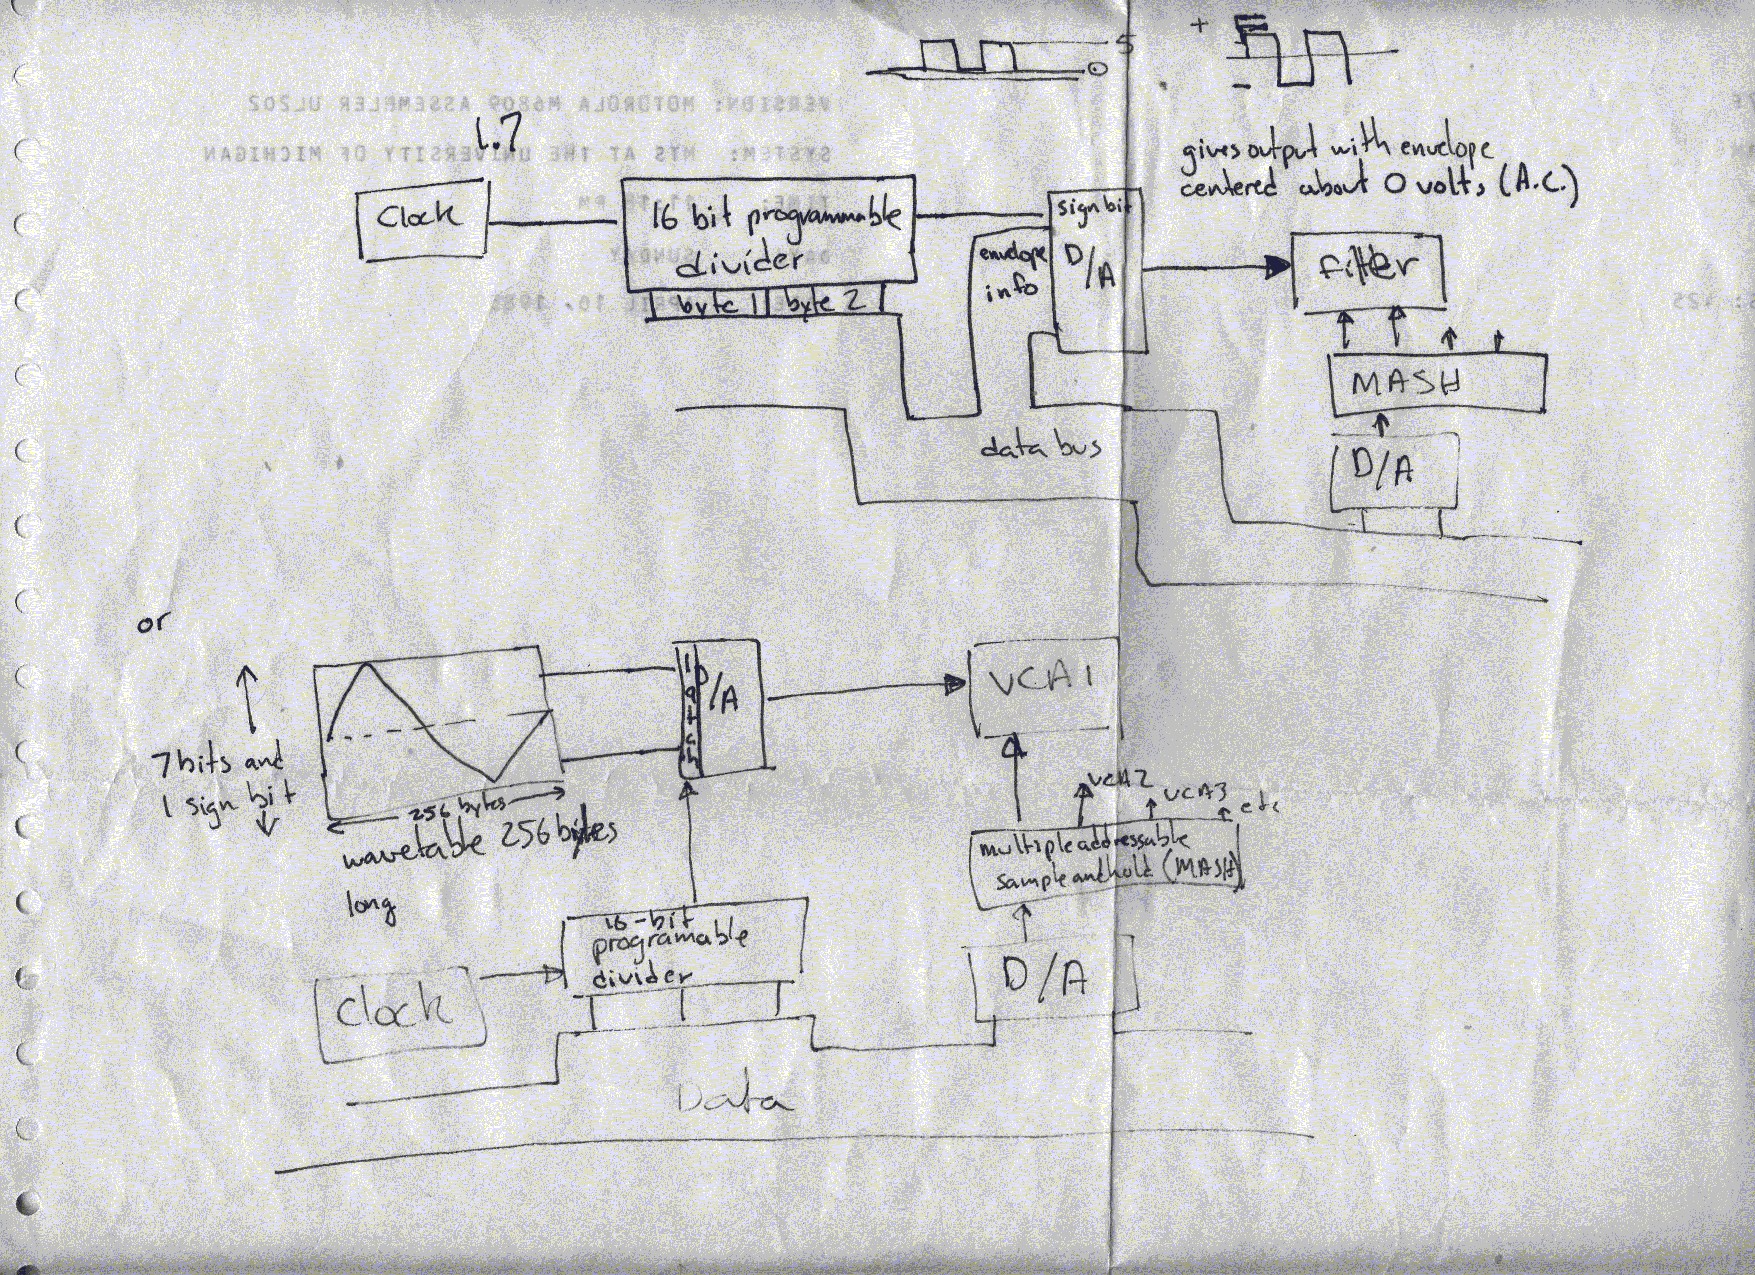 5
0
+
-
VERSION: MOTOROLA M6809 ASSEMBLER UL202
SYSTEM: MTS AT THE UNIVERSITY OF MICHIGAN
SUNDAY
1.7
gives output with envelope
centered about 0 volts (A.C.)
Clock
16 bit programmable
divider
byte 1
byte 2
sign bit
D/A
envelope
info
filter
MASH
D/A
data bus
or
7 bits and
1 sign bit
256 bytes
wavetable 256 bytes
long
latch
D/A
VCA1
VCA2
VCA3
etc
multiple addressable
sample and hold (MASH)
D/A
16-bit
programable
divider
Clock
Data